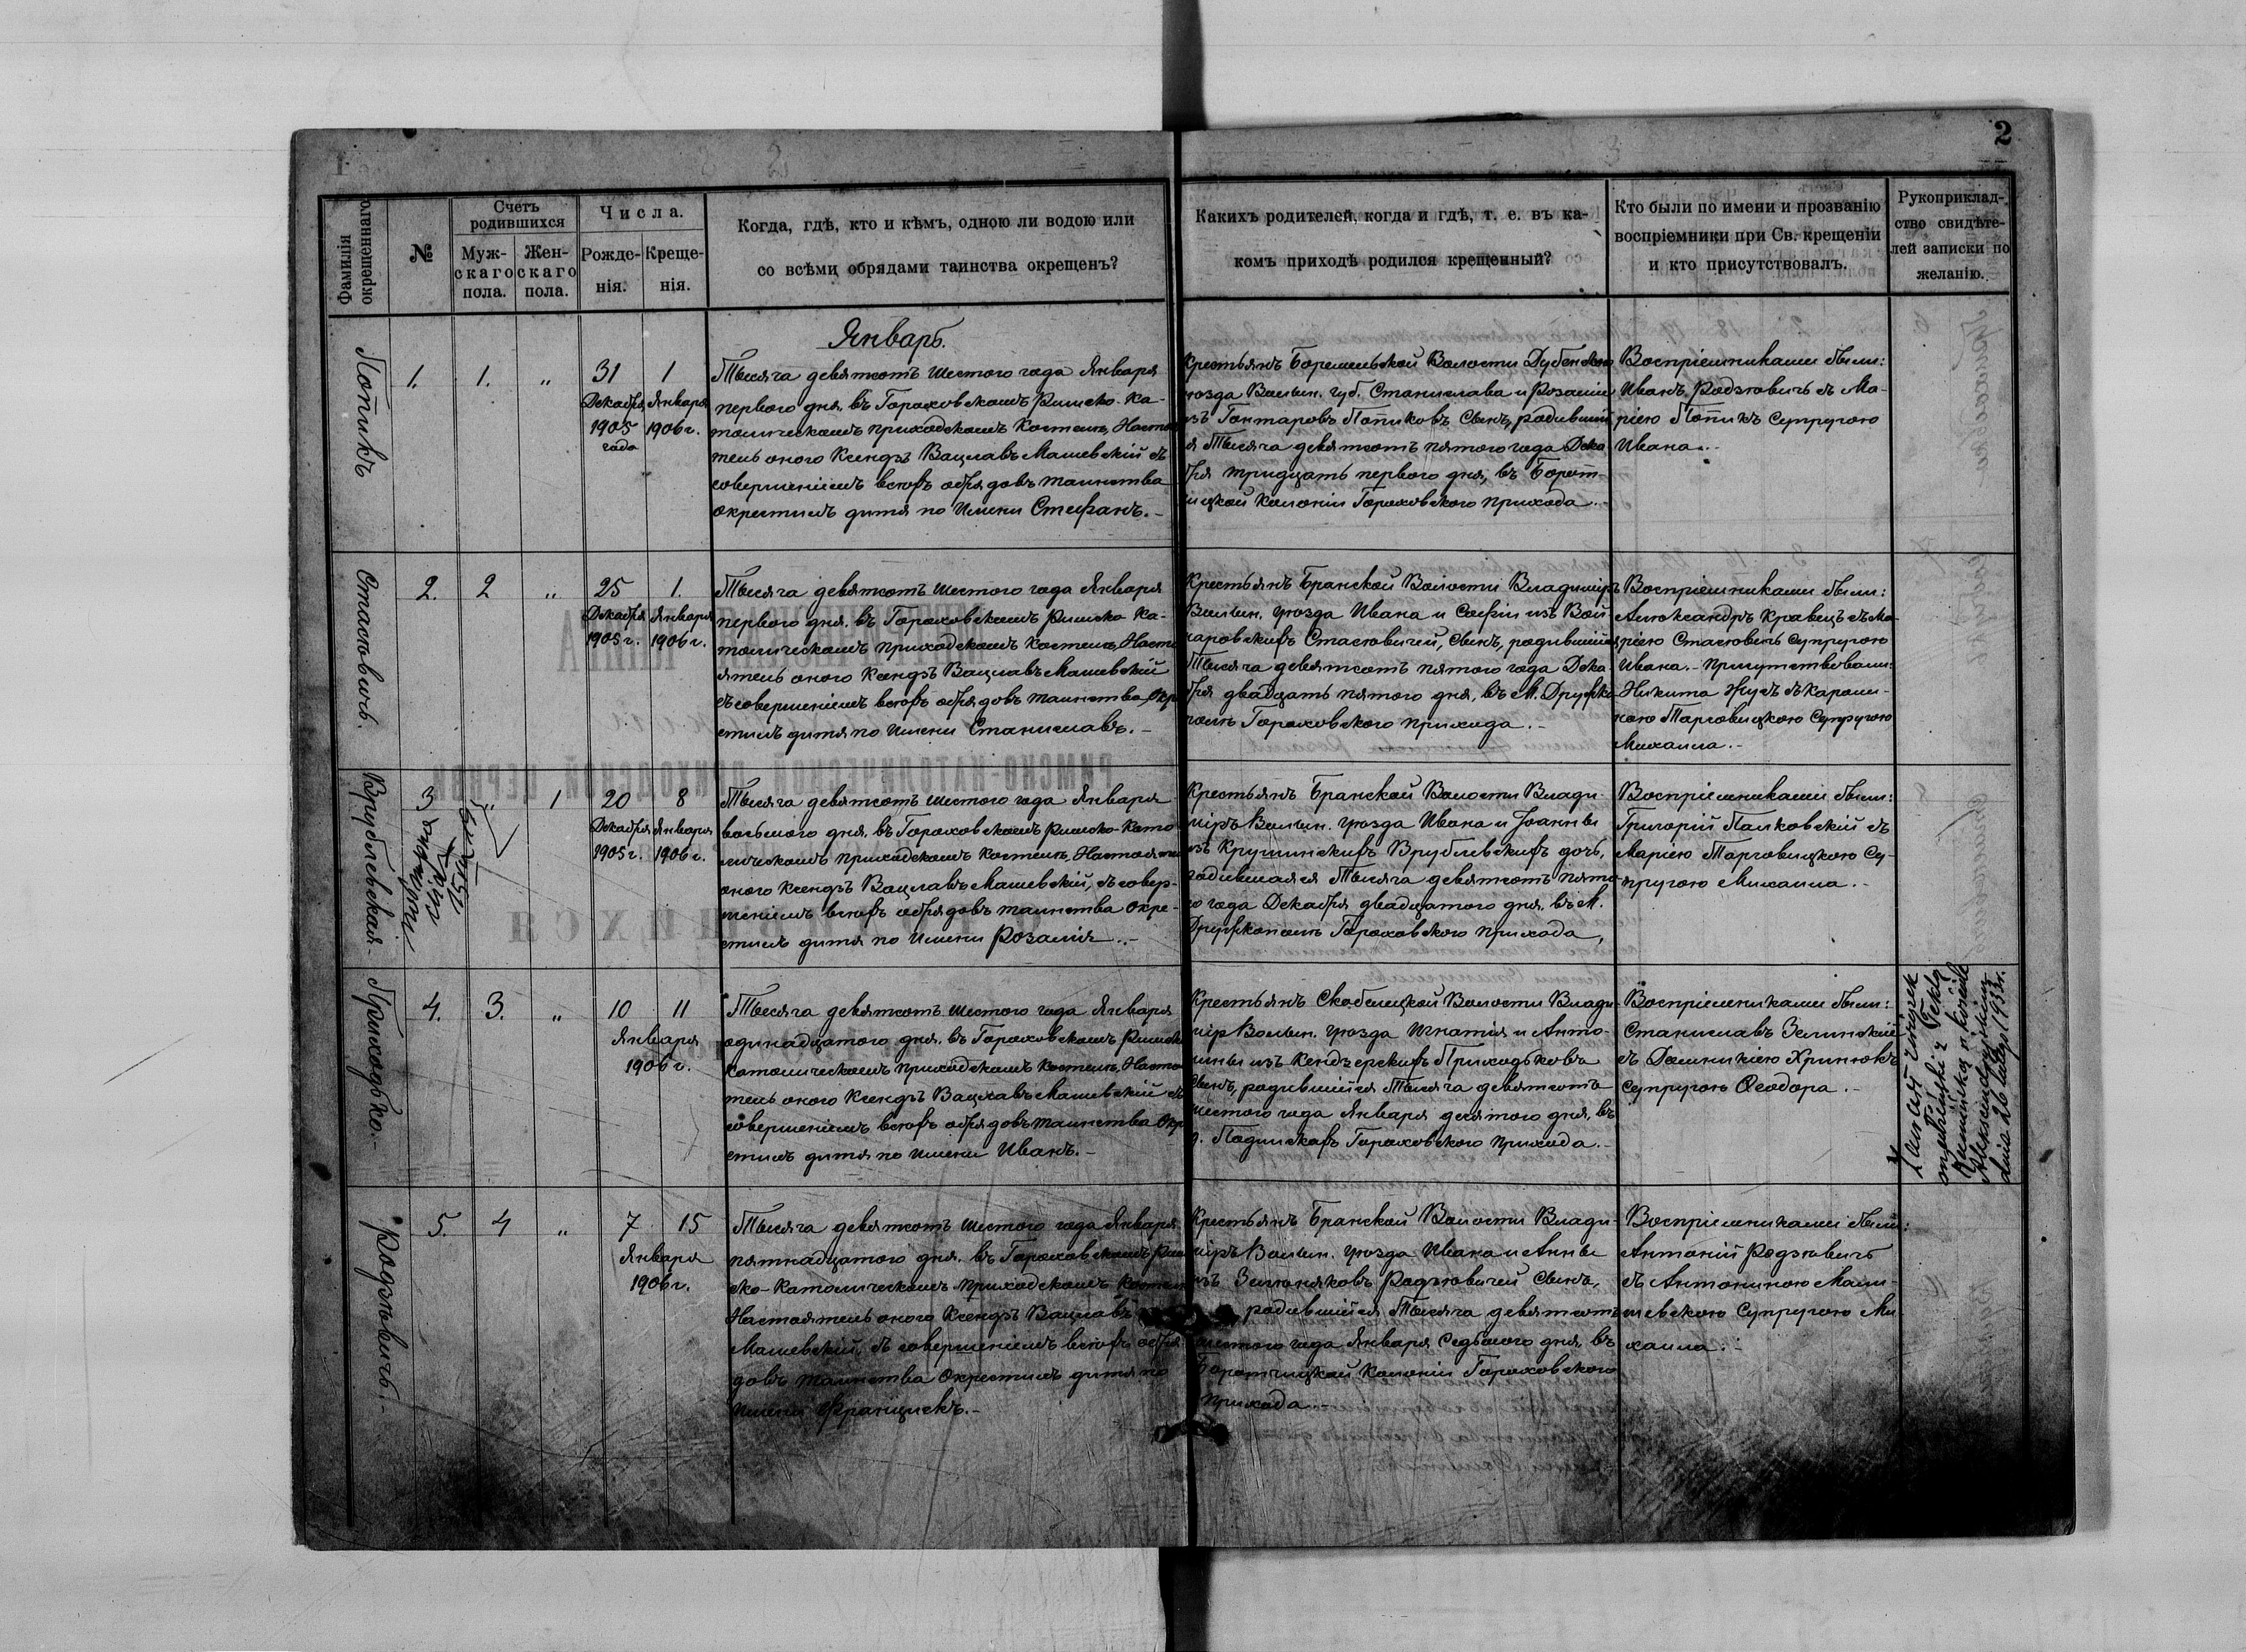 2
Фамилія окрещеннаго
№
Счетъ родившихся
Муж-
скаго
пола.
Жен-
скаго
пола.
Числа.
Рожде-
нія.
Креще-
нія.
Когда, гдѣ, кто и кѣмъ, одною ли водою или
со всѣми обрядами таинства окрещенъ?
Какихъ родителей, когда и гдѣ, т. е. въ ка-
комъ приходѣ родился крещенный?
Кто были по имени и прозванію
воспріемники при Св. крещеніи
и кто присутствовалъ.
Рукоприклад-
ство свидѣте-
лей записки по
желанію.
Январь.
Попикъ
1.
1.
"
31
Декабря
1905
года
1
Января
1906 г.
Тысяча девятсотъ шестого года Января
перваго дня, въ Гороховскомъ Римско-Ка-
толическомъ приходскомъ костелѣ, Насто
тель оного Ксендзъ Вацлавъ Машевскій съ
совершеніемъ всѣхъ обрядовъ таинства
окрестилъ дитя по имени Стефанъ.-
Крестьянъ Боремельской Волости Дубенского
уѣзда Волын. губ. Станислава и Розаліи
изъ Гонтаровъ Попиковъ Сынъ, родившій
я Тысяча девятсотъ пятого года Дека
бря тридцать перваго дня, въ Борот-
ицкой Колоніи Гороховского прихода.-
Воспріемниками были:
Иванъ Родзювичъ съ Ма-
ріею Попикъ супругою
Ивана.-
Стасювичъ.
2.
2
"
25
Декабря
1905 г.
1.
Января
1906 г.
Тысяча девятсотъ шестого года Января
перваго дня, въ Гороховскомъ Римско-Ка-
толическомъ приходскомъ костелѣ, Насто
ятель оного Ксендзъ Вацлавъ Машевскій
съ совершеніемъ всѣхъ обрядовъ таинства окр
стилъ дитя по имени Станиславъ.-
Крестьянъ Бранской Волости Владимір
Волын. уѣзда Ивана и Софіи изъ Вой
наровскихъ Стасювичей, Сынъ, родившійся
Тысяча девятсотъ пятого года Дека
бря двадцать пятого дня, въ М. Дружко
полѣ Гороховского прихода.-
Воспріемниками были:
Александръ Кравецъ съ Ма-
ріею Стасювичъ супругою
Ивана.- Присутствовали:
Никита Жукъ съ Кароли-
ною Тарговицкою Супругою
Михаила.-
Врублевская.
3
"
1
20
Декабря
1905 г.
8
Января
1906 г.
Тысяча девятсотъ шестого года Января
восьмого дня, въ Гороховскомъ Римско-Като
лическомъ приходскомъ костелѣ, Настоятель
оного Ксендзъ Вацлавъ Машевскій, съ совер-
шеніемъ всѣхъ обрядовъ таинства окре-
стилъ дитя по имени Розалія.-
Крестьянъ Бранской Волости Влади-
міръ Волын. уѣзда Ивана и Іоанны
изъ Крушинскихъ Врублевскихъ дочь,
родившаяся Тысяча девятсотъ пято-
го года Декабря двадцатого дня, въ М.
Дружкополѣ Гороховского прихода,
Воспріемниками были:
Григорій Палковскій съ
Маріею Тарговицкою Су-
пругою Михаила.-
Приходько.
4.
3.
"
10
11
Января
1906 г.
Тысяча девятсотъ шестого года Января
одинадцатого дня, въ Гороховскомъ Римско
Католическомъ приходскомъ костелѣ, Насто
тель оного Ксендзъ Вацлавъ Машевскій съ
совершеніемъ всѣхъ обрядовъ таинства окр
стилъ дитя по имени Иванъ.-
Крестьянъ Скобелецкой Волости Влади-
мір Волын. уѣзда Игнатія и Анто-
нины изъ Кендзерскихъ Приходьковъ
Сынъ, родившійся Тысяча девятсотъ
шестого года Января десятого дня, въ
д. Подлискахъ Гороховского прихода.-
Воспріемниками были:
Станиславъ Зелинскій
съ Доминикіею Хринюкъ
супругою Ѳеодора.-
Zawarł związek
małżeński z Teklą
w kościele
dnia 26 lutego 1933 r.
Родзювичъ.-
5.
4
"
7
15
Января
1906 г.
Тысяча девятсотъ шестого года Января
пятнадцатого дня, въ Гороховскомъ Рим
ско-Католическомъ приходскомъ костел
Настоятель оного Ксендзъ Вацлавъ
Машевскій, съ совершеніемъ всѣхъ обря
довъ таинства окрестилъ дитя по
имени Францискъ.-
Крестьянъ Бранской Волости Влади-
міръ Волын. уѣзда Ивана и Анны
изъ Зелюняковъ Родзювичей Сынъ,
родившійся Тысяча девятсотъ
шестого года Января седьмого дня, въ
Боротчицкой Колоніи Гороховского
прихода.-
Воспріемниками были:
Антоній Родзювичъ
съ Антониною Маши-
шевскою Супругою Ми
хаила.-